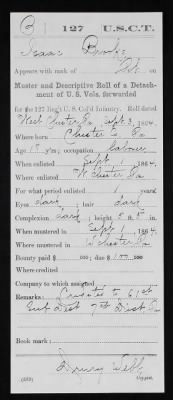 B 127 U.S.C.T.
Isaac Brooks
Appears with rank of Pvt. on
Muster and Descriptive Roll of a Detach-
ment of U. S. Vols. forwarded
for the 127 Reg't U. S. Col'd Infantry. Roll dated
West Chester Pa Sept 3, 1864.
Where born Chester Co Pa
Age 18 y'rs; occupation Laborer
When enlisted Sept 1, 1864.
Where enlisted W. Chester Pa
For what period enlisted 1 years.
Eyes dark; hair dark
Complexion dark; height 5 ft. in.
When mustered in Sept 1, 1864.
Where mustered in W Chester Pa
Bounty paid $ 100; due $ 100
Where credited
Company to which assigned
Remarks: Credited to 61st
Sub Dist 7th Dist Pa
Book mark:
Drury Webb
Copyist.